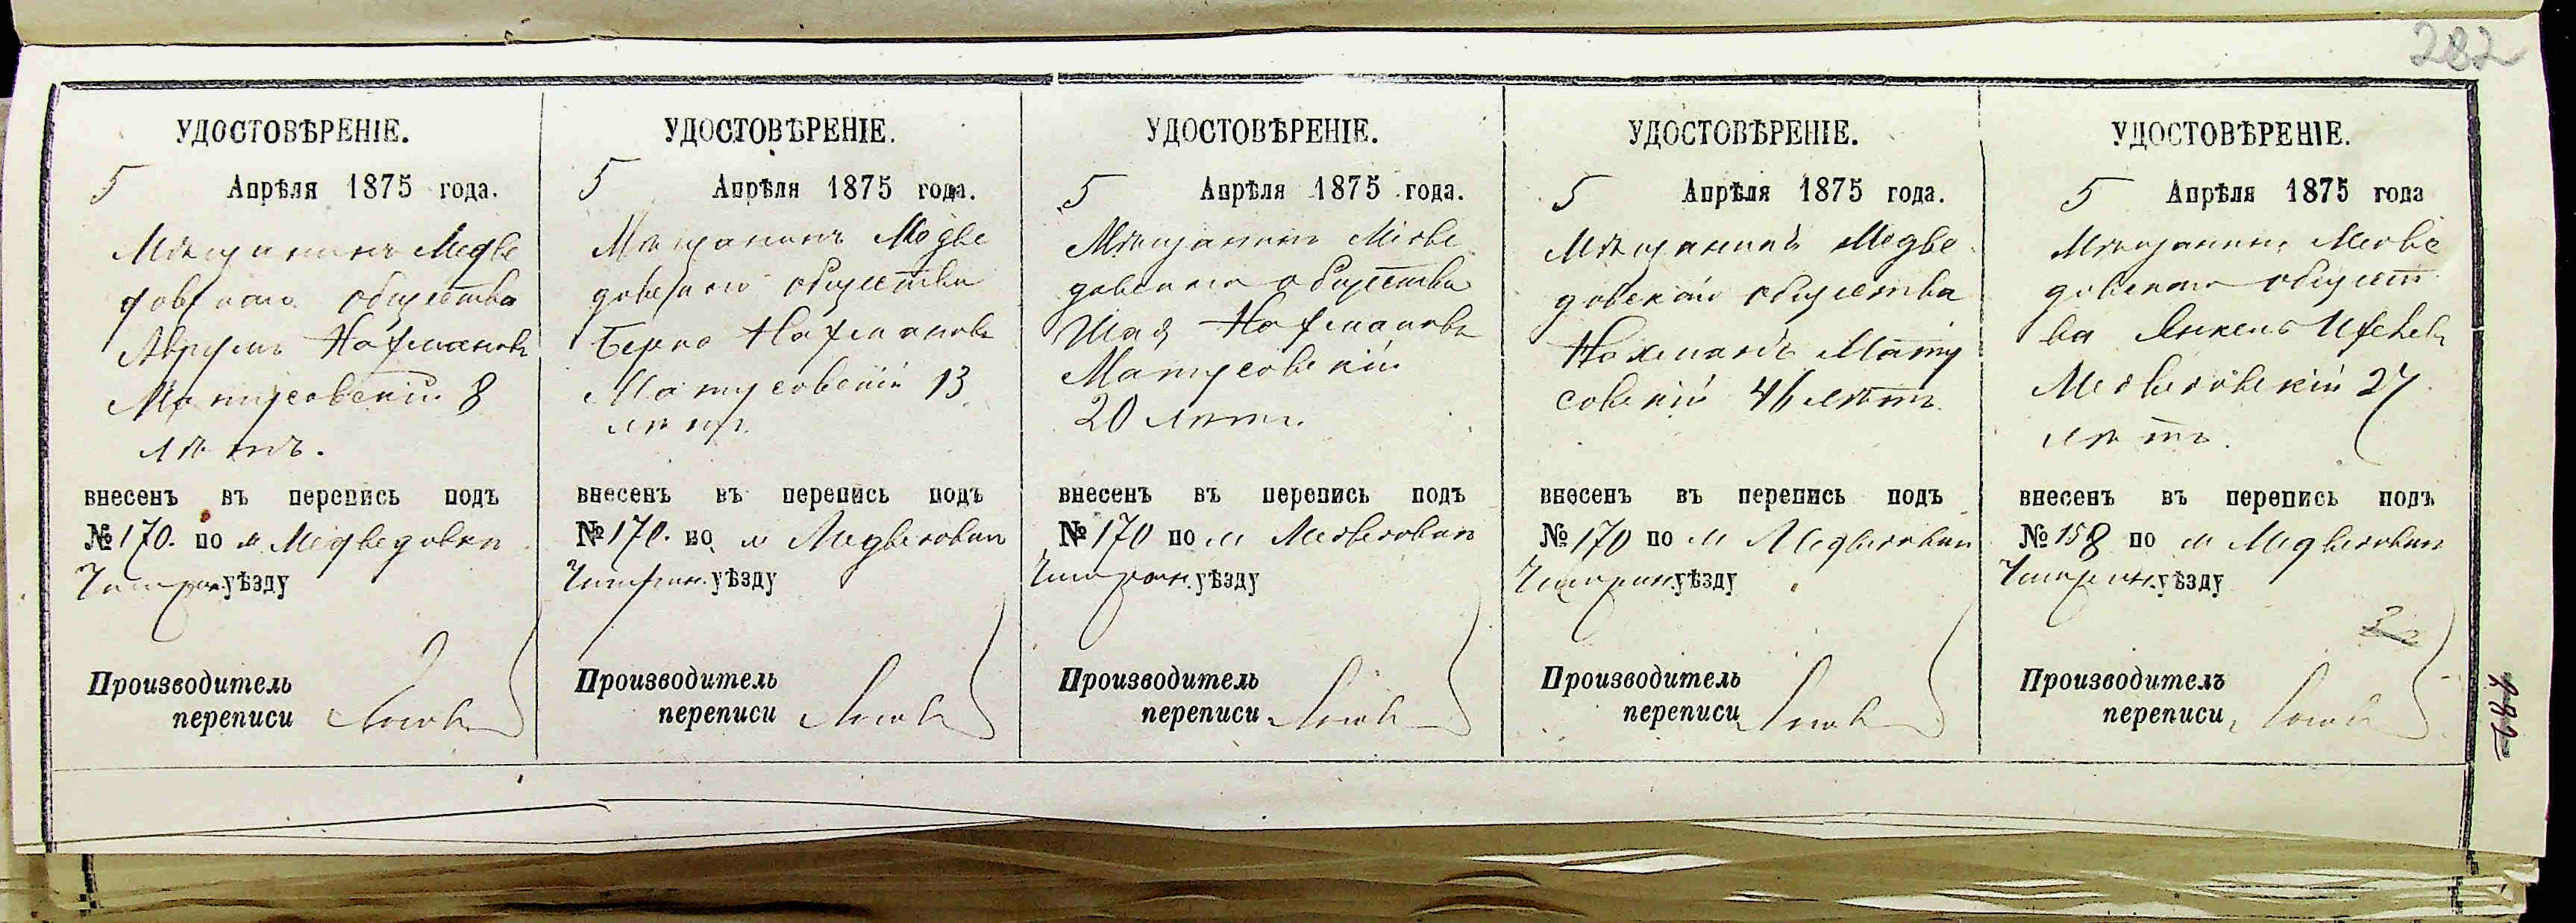 282
УДОСТОВѢРЕНІЕ.
5 Апрѣля 1875 года.
Мѣщанинъ Медве
довскаго общества
Аврумъ Нахмановъ
Матусовскій 8
лѣтъ.
внесенъ въ перепись подъ
№ 170. по м Медведовкѣ
Чигирин. уѣзду
Производитель
переписи
УДОСТОВѢРЕНІЕ.
5 Апрѣля 1875 года.
Мѣщанинъ Медве
довскаго общества
Берко Нахмановъ
Матусовскій 13
лѣтъ.
внесенъ въ перепись подъ
№ 170. по м Медведовкѣ
Чигирин. уѣзду
Производитель
переписи
УДОСТОВѢРЕНІЕ.
5 Апрѣля 1875 года.
Мѣщанинъ Медве
довскаго общества
Шая Нахмановъ
Матусовскій
20 лѣтъ.
внесенъ въ перепись подъ
№ 170 по м Медведовкѣ
Чигирин. уѣзду
Производитель
переписи
УДОСТОВѢРЕНІЕ.
5 Апрѣля 1875 года.
Мѣщанинъ Медве
довскаго общества
Нахманъ Мату
совскій 46 лѣтъ
внесенъ въ перепись подъ
№ 170 по м Медведовкѣ
Чигирин. уѣзду
Производитель
переписи
УДОСТОВѢРЕНІЕ.
5 Апрѣля 1875 года
Мѣщанинъ Медве
довскаго общест
ва Янкель
Медведовскій 27
лѣтъ.
внесенъ въ перепись подъ
№ 158 по м Медведовкѣ
Чигирин. уѣзду
Производитель
переписи